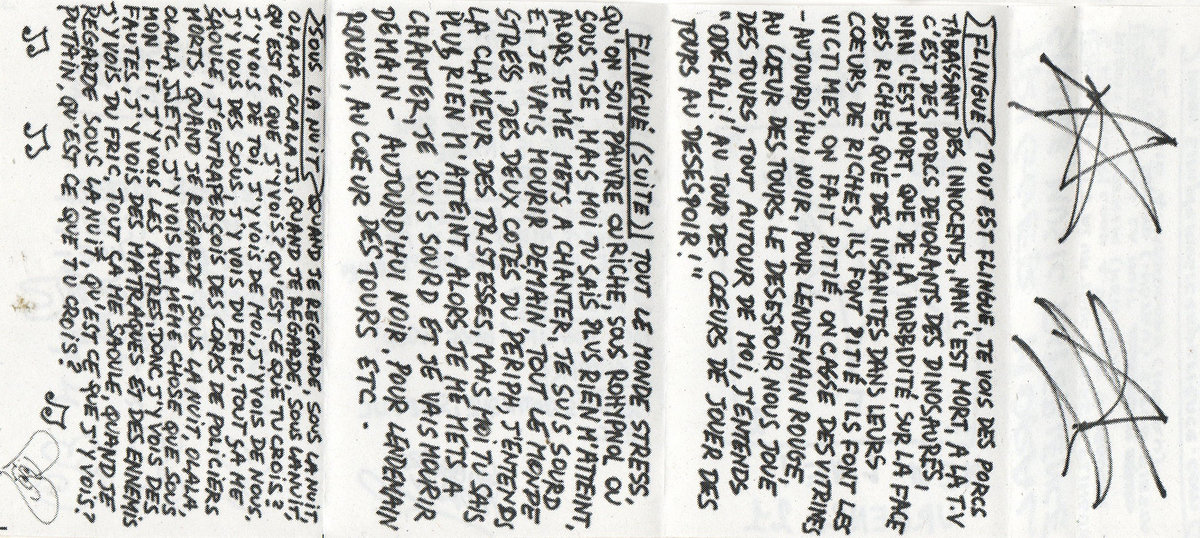 FLINGUÉ TOUT EST FLINGUÉ, JE VOIS DES PORCS
TABASSANT DES INNOCENTS, NAN C'EST MORT, A LA TV
C'EST DES PORCS DEVORANTS DES DINOSAURES,
NAN C'EST MORT QUE DE LA MORBIDITÉ, SUR LA FACE
DES RICHES, QUE DES INSANITÉS DANS LEURS
CŒURS DE RICHES, ILS FONT PITIÉ, ILS FONT LES
VICTIMES, ON FAIT PITIÉ, ON CASSE DES VITRINES
- AUJOURD'HUI NOIR, POUR LENDEMAIN ROUGE
AU CŒUR DES TOURS, LE DESESPOIR NOUS JOUE
DES TOURS, TOUT AUTOUR DE MOI, J'ENTENDS
"ODELALI! AU TOUR DES CŒURS DE JOUER DES
TOURS AU DESESPOIR!"
FLINGUÉ (SUITE) TOUT LE MONDE STRESS,
QU'ON SOIT PAUVRE OU RICHE, SOUS ROHYPNOL OU
SOUS TISE, MAIS MOI TU SAIS PLUS RIEN M'ATTEINT,
ALORS JE ME METS A CHANTER, JE SUIS SOURD
ET JE VAIS MOURIR DEMAIN, TOUT LE MONDE
STRESS, DES DEUX COTÉS DU PERIPH, J'ENTENDS
LA CLAMEUR DES TRISTESSES, MAIS MOI TU SAIS
PLUS RIEN M'ATTENT, ALORS JE ME METS A
CHANTER, JE SUIS SOURD ET JE VAIS MOURIR
DEMAIN - AUJOURD'HUI NOIR, POUR LENDEMAIN
ROUGE, AU CŒUR DES TOURS ETC.
SOUS LA NUIT QUAND JE REGARDE, SOUS LA NUIT,
OLALA, OLALA SI, QUAND JE REGARDE, SOUS LA NUIT,
QU'EST CE QUE J'Y VOIS? QU'EST CE QUE TU CROIS?
J'Y VOIS DE TOI, J'Y VOIS DE MOI, J'Y VOIS DE NOUS,
J'Y VOIS DES SOUS, J'Y VOIS DU FRIC, TOUT SA ME
SAOULE, J'ENTRAPERÇOIS DES CORPS DE POLICIERS
MORTS, QUAND JE REGARDE, SOUS LA NUIT, OLALA,
OLALA SI ETC J'Y VOIS LA MÊME CHOSE QUE SOUS
MON LIT, J'Y VOIS LES AUTRES, DONC J'Y VOIS DES
FAUTES, J'Y VOIS DES MATRAQUES ET DES ENNEMIS
J'Y VOIS DU FRIC, TOUT SA ME SAOULE, QUAND JE
REGARDE SOUS LA NUIT, QU'EST CE QUE J'Y VOIS?
PUTAIN, QU'EST CE QUE TU CROIS?